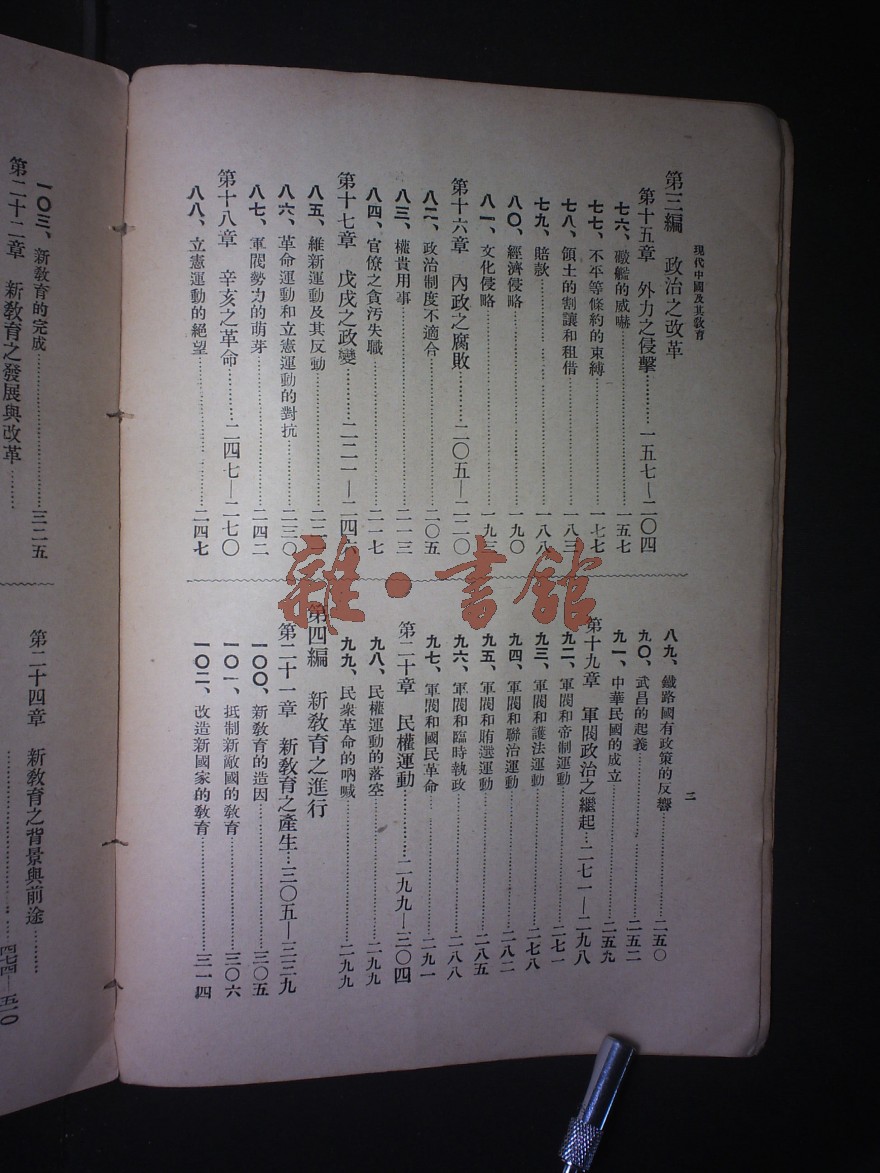 現代中國及其教育
二
第三編　政治之改革
第十五章　外力之侵擊………一五七—二〇四
七六、礮艦的威嚇………一五七
七七、不平等條約的束縛………一七七
七八、領土的割讓和租借………一八三
七九、賠款………一八八
八〇、經濟侵略………一九〇
八一、文化侵略
第十六章　內政之腐敗………二〇五—二二〇
八二、政治制度不適合………二〇五
八三、權貴用事………二一三
八四、官僚之貪污失職………二一七
第十七章　戊戌之政變………二二一—二四六
八五、維新運動及其反動
八六、革命運動和立憲運動的對抗………二三〇
八七、軍閥勢力的萌芽………二四二
第十八章　辛亥之革命………二四七—二七〇
八八、立憲運動的絕望………二四七
八九、鐵路國有政策的反響………二五〇
九〇、武昌的起義………二五二
九一、中華民國的成立………二五九
第十九章　軍閥政治之繼起…二七一—二九八
九二、軍閥和帝制運動………二七一
九三、軍閥和護法運動………二七八
九四、軍閥和聯治運動………二八二
九五、軍閥和賄選運動………二八五
九六、軍閥和臨時執政………二八八
九七、軍閥和國民革命………二九一
第二十章　民權運動………二九九—三〇四
九八、民權運動的落空………二九九
九九、民衆革命的吶喊………二九九
第四編　新教育之進行
第二十一章　新教育之產生…三〇五—三三九
一〇〇、新教育的造因………三〇五
一〇一、抵制新敵國的教育………三〇六
一〇二、改造新國家的教育………三一四
一〇三、新教育的完成………三二五
第二十二章　新教育之發展與改革………
第二十四章　新教育之背景與前途………
………四七四—五一〇
雜·書館